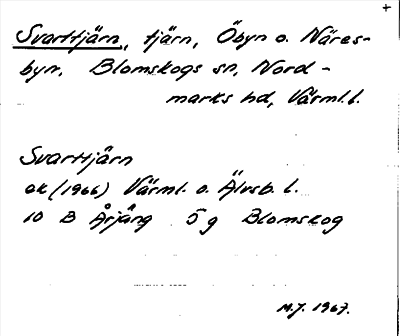 +
Svarttjärn, tjärn, Öbyn o. Näres-
byn, Blomskogs sn, Nord-
marks hd, Värml. l.
Svarttjärn
ek (1966) Värml. o. Älvsb. l.
10 B Årjäng 5 g Blomskog
M.J. 1967.